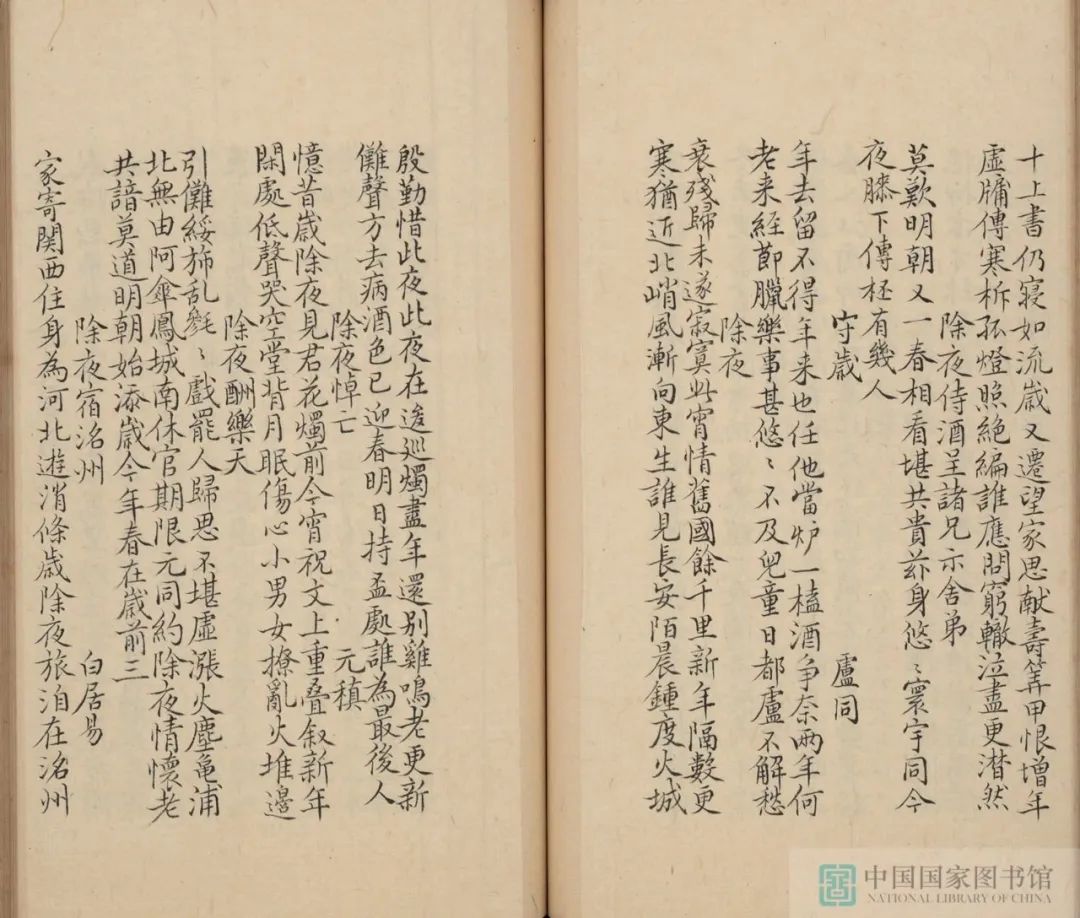 十上書仍寢如流歲又遷望家思献壽筭甲恨增年
虛牗傳寒柝孤燈照絶編誰應問窮轍泣盡更潸然
除夜侍酒呈諸兄示舍弟
莫歎明朝又一春相看堪共貴茲身悠〻寰宇同今
夜膝下傳杯有幾人
守歲 盧同
年去留不得年来也任他當炉一榼酒争奈兩年何
老来經節臘樂事甚悠〻不及兒童日都盧不解愁
除夜
衰殘歸未遂寂寞此宵情舊國餘千里新年隔數更
寒猶近北峭風漸向東生誰見長安陌晨鍾度火城
殷勤惜此夜此夜在逡廵燭盡年還别雞鳴老更新
儺聲方去病酒色已迎春明日持盃處誰為最後人
除夜悼亡 元稹
憶昔歲除夜見君花燭前今宵祝文上重叠叙新年
閑處低聲哭空堂背月眠傷心小男女撩亂火堆邊
除夜酬樂天
引儺綏斾乱毵〻戲罷人歸思不堪虛漲火塵亀浦
北無由阿傘鳳城南休官期限元同約除夜情懷老
共諳莫道明朝始添歲今年春在歲前三
除夜宿洺州 白居易
家寄関西住身為河北遊消條歲除夜旅泊在洺州
中国国家图书馆
NATIONAL LIBRARY OF CHINA